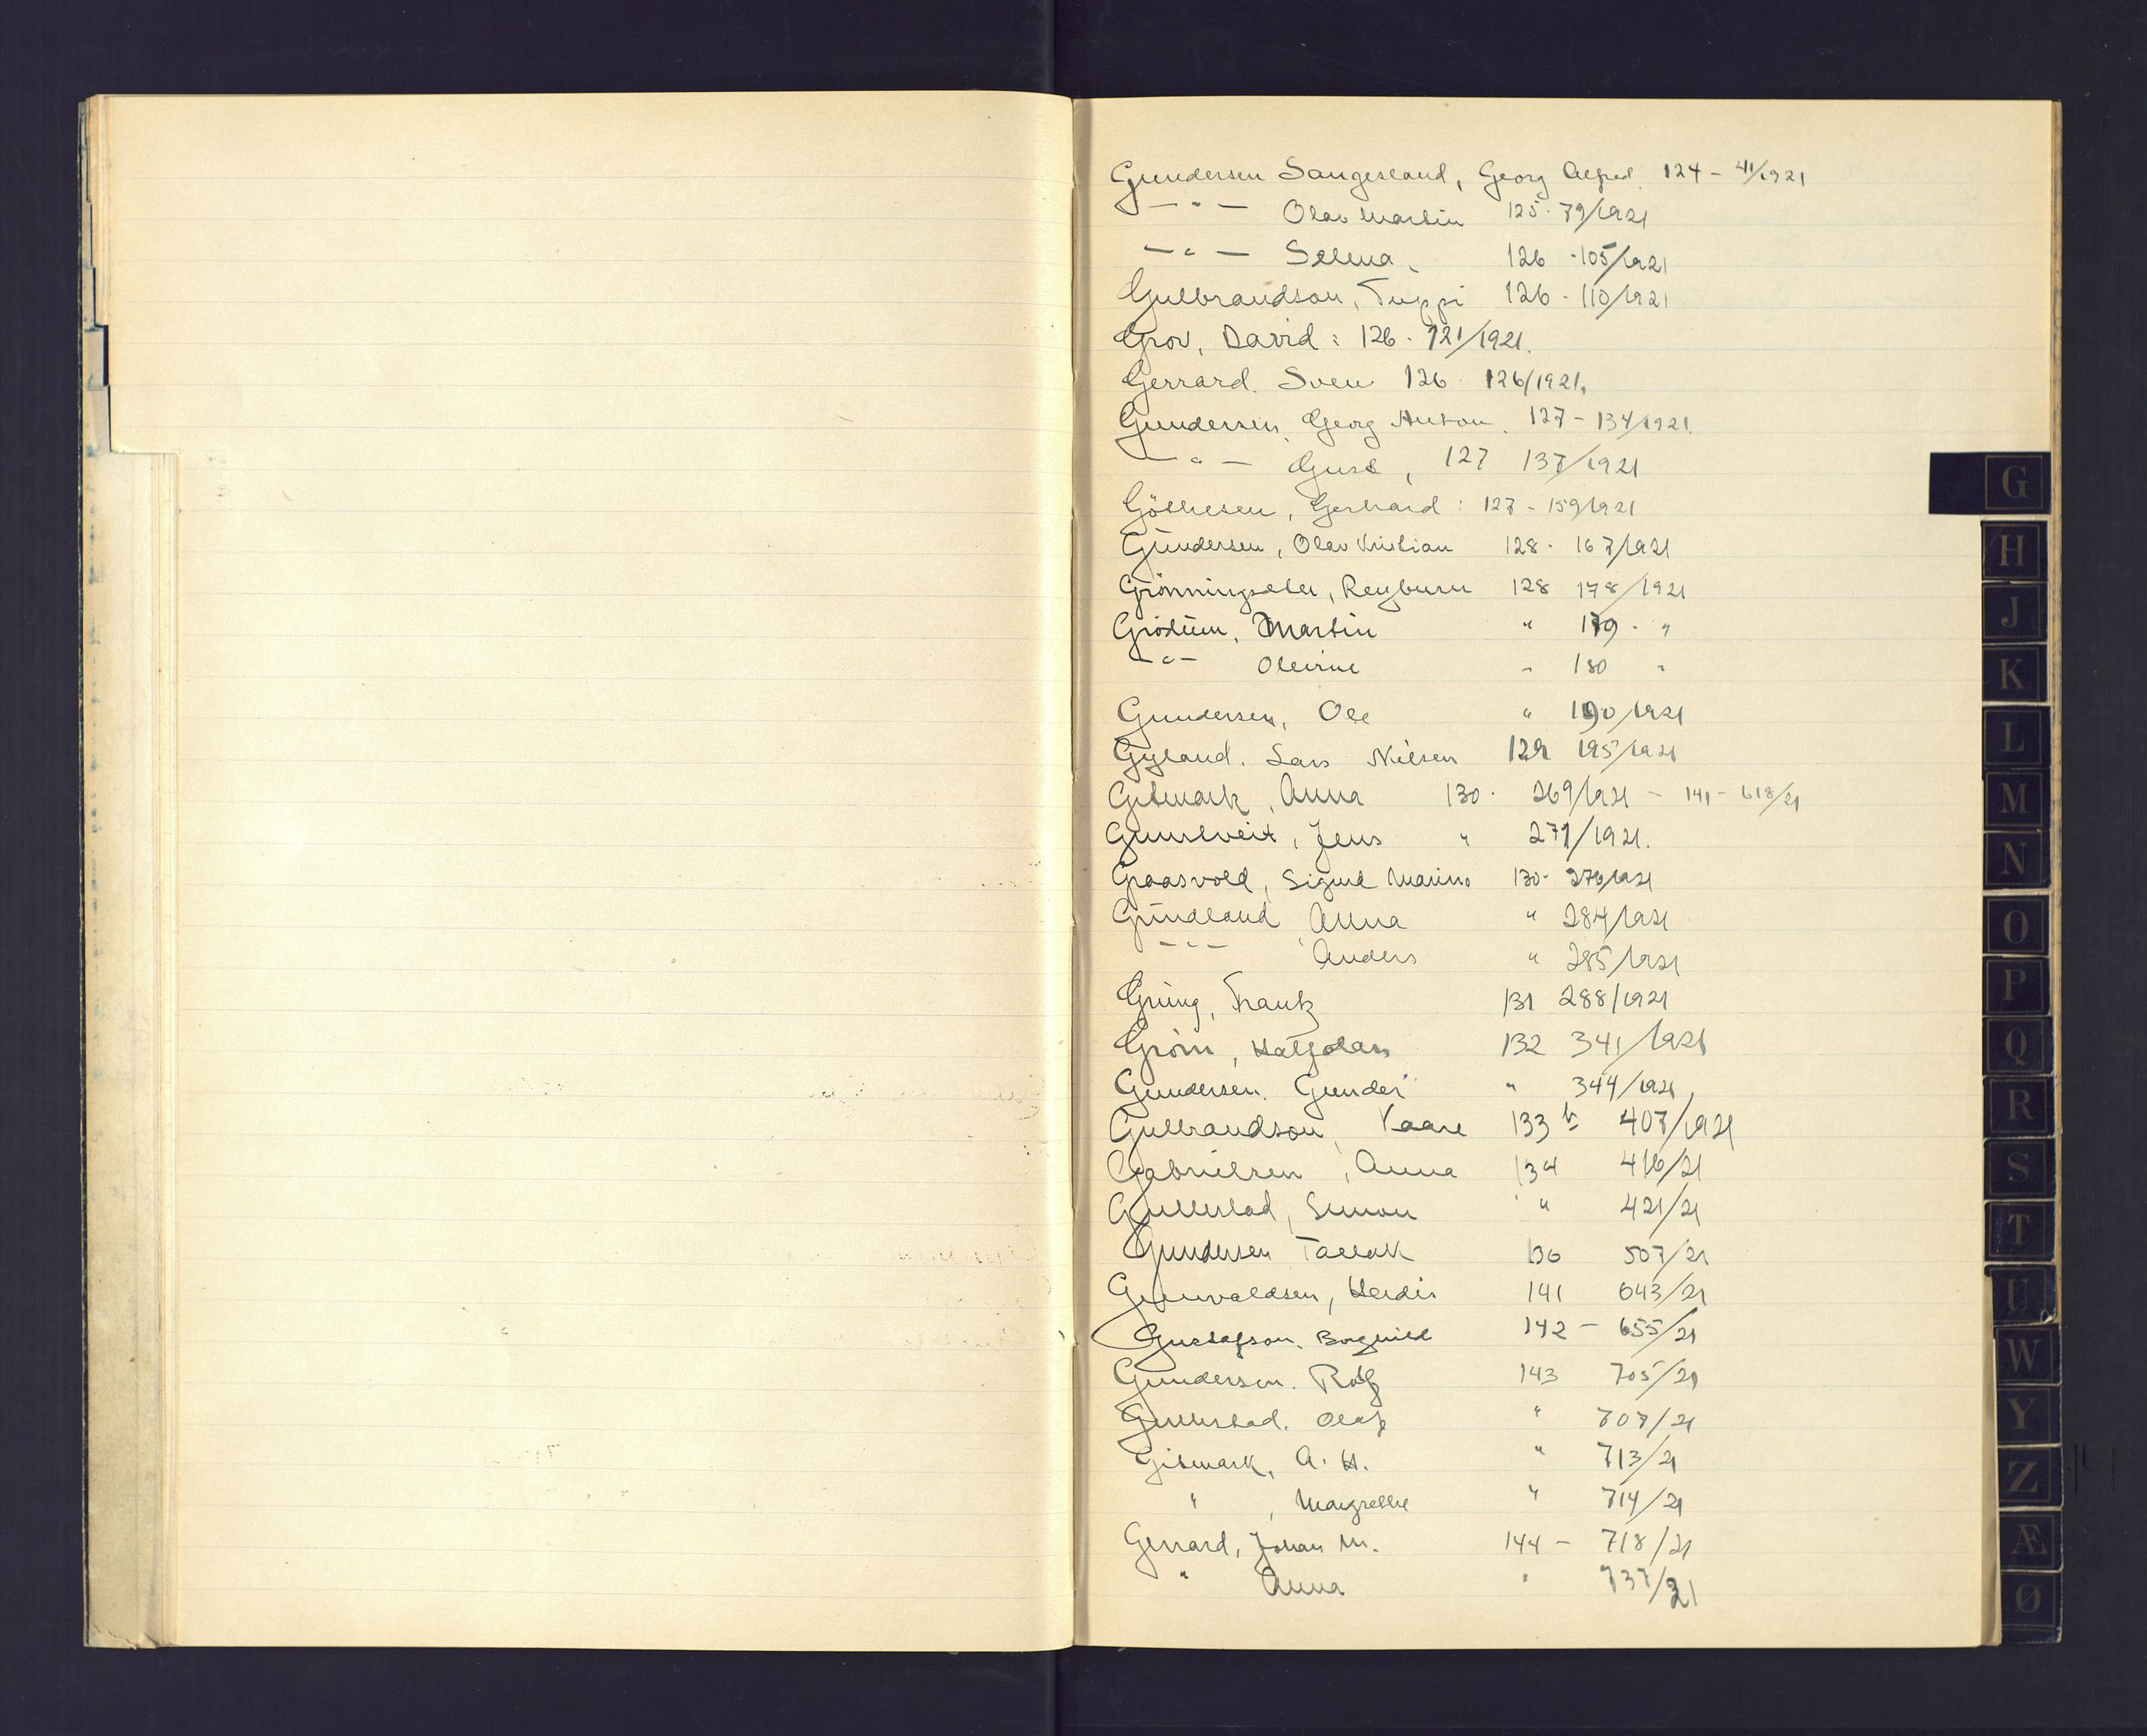 Gundersen Langesland, Georg Alfred. 124 - 41/1921
— " — Olav Martin 125 · 79/1921
— " — Selma, 126 · 105/1921
Gulbrandson, Tuppi 126 · 110/1921
Grov, David : 126 · 121/1921.
Gerrard. Sven 126 · 126/1921.
Gundersen, Georg Anton. 127 - 134/1921.
— " — Gust, 127 137/1921
Göthesen, Gerhard : 127 - 159/1921
Gundersen, Olav Kristian 128 · 167/1921
Grönningsæter, Reuburn 128 178/1921
Grödum, Martin " 179 · "
— " — Olevine " 180 "
Gundersen, Ole " 190/1921
Gyland. Lars Nielsen 129 195/1921
Gitmark, Anna 130 · 269/1921 - 141 - 618/21
Gunstveit, Jens " 271/1921.
Graasvold, Sigurd Marino 130 · 276/1921
Grundland Anna " 284/1921
— " — Anders " 285/1921
Grüng, Frantz 131 288/1921
Gröm, 132 341/1921
Gundersen. Gunder " 344/1921
Gulbrandson, Kaare 133 b 407/1921
Gabrielsen, Anna 134 416/21
Gullestad, Simon " 421/21
Gundersen Tallak 136 507/21
Gunvaldsen, Herdis 141 643/21
Gustafson. Borghild 142 - 655/21
Gundersen. Rolf 143 705/21
Gullestad. Olaf " 707/21
Gitmark, A. H. " 713/21
" , Margrethe " 714/21
Gerrard, Johan M. 144 - 718/21
" Anna " 737/21
G
H
J
K
L
M
N
O
P
Q
R
S
T
U
W
Y
Z
Æ
Ø